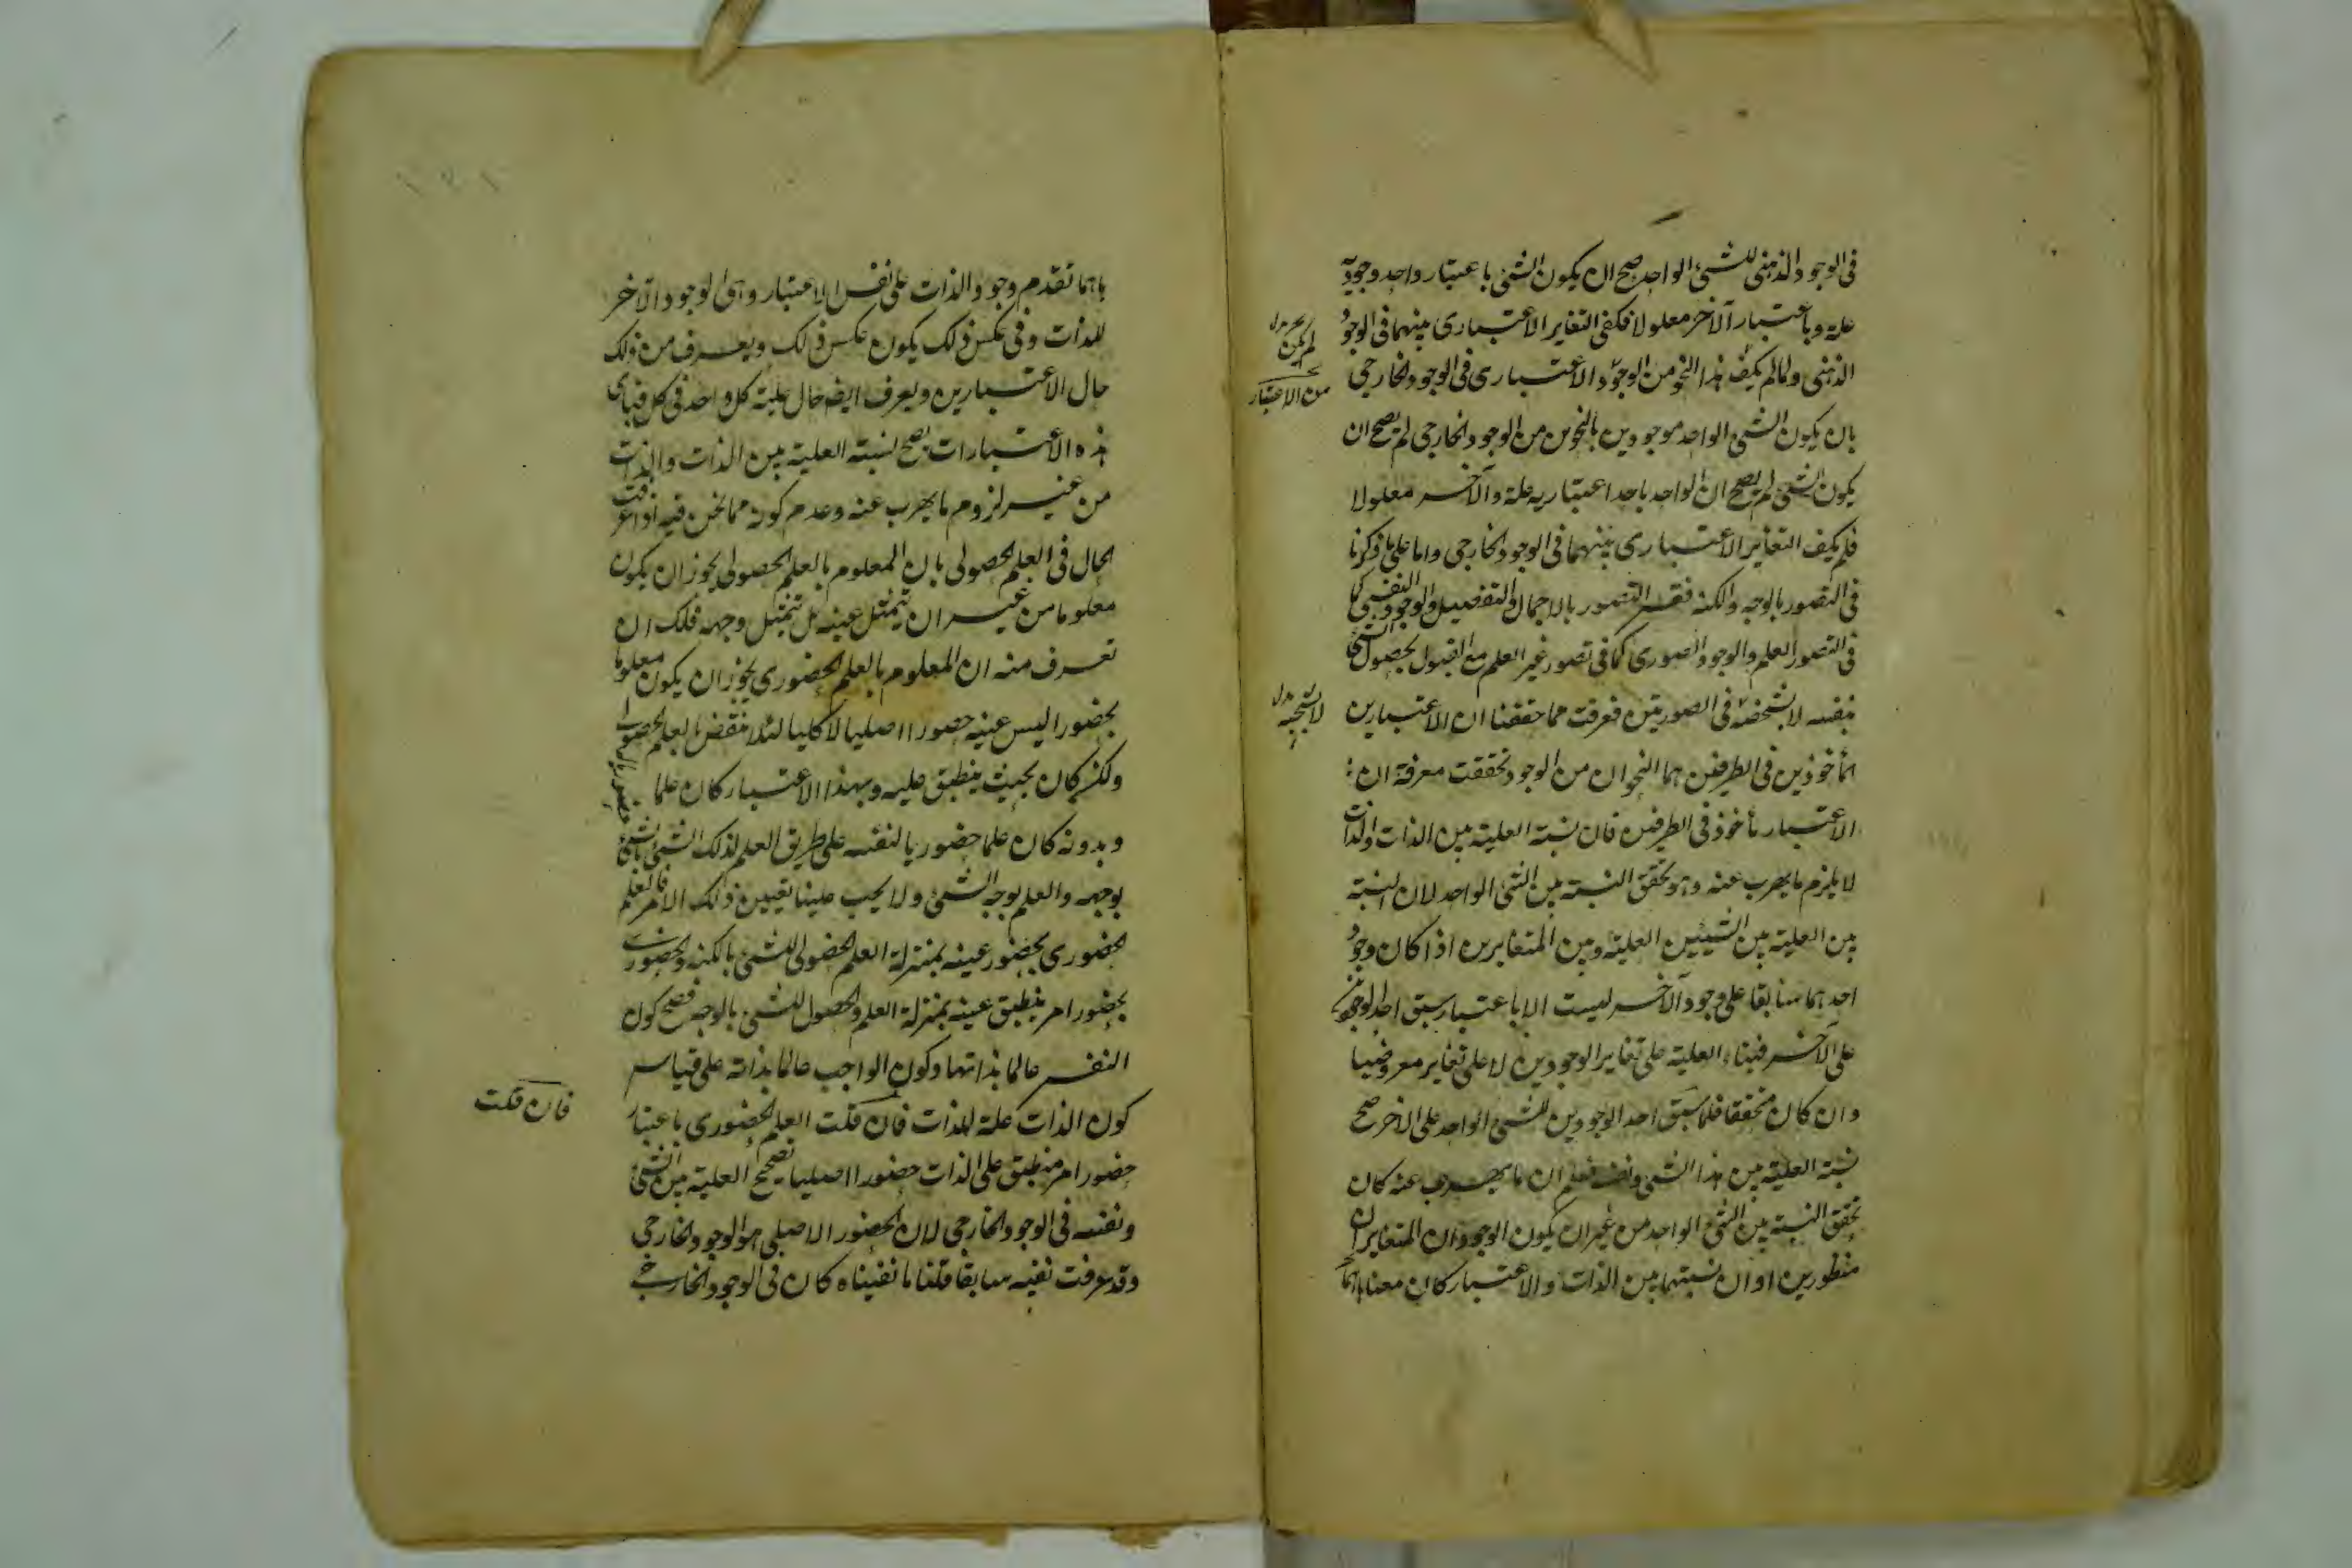 فى الوجود الذهنى للشىء الواحد صح ان يكون الشىء باعتبار واحد وجوديه
علة وباعتبار الآخر معلولا فكفى التغاير الاعتبارى بينهما فى الوجود
الذهنى ولما لم يكف هذا النحو من الوجود الاعتبارى فى الوجود الخارجى
لم يكن
من الاعتبار
بان يكون الشىء الواحد موجودين بالنحوين من الوجود الخارجى لم يصح ان
يكون الشىء لم يصح ان الواحد باحد اعتباريه علة والآخر معلولا
فلم يكف التغاير الاعتبارى بينهما فى الوجود الخارجى واما على ما ذكرنا
فى التصور بالوجه والكنه فقسر التصور بالاجمال والتفصيل والوجود النفسى كما
فى التصور العلم والوجود الصورى كما فى تصور غير العلم مع القبول بحصول الشىء
بنفسه لا بشخصه فى الصورتين فعرفت مما حققنا ان الاعتبارين
المأخوذين فى الطرفين هما النحوان من الوجود تحققت معرفة ان
الاعتبار مأخوذ فى الطرفين فان نسبة العلية بين الذات والذات
لا يلزم ما يهرب عنه وهو تحقق النسبة بين الشىء الواحد لان النسبة
بين العلية بين الشيئين العلية وبين المتغايرين اذا كان وجود
احدهما سابقا على وجود الآخر ليست الا باعتبار سبق احد الوجودين
على الآخر فبناء العلية على تغاير الوجودين لا على تغاير معروضيها
وان كان متحققا فلما سبق احد الوجودين للشىء الواحد على الاخر صح
نسبة العلية بين هذا الشىء ونفسه فعلم ان ما يهرب عنه كان
تحقق النسبة بين الشىء الواحد من غير ان يكون الوجودان المتغايران
منظورين او ان نسبتهما بين الذات والاعتبار كان معناها
باهما تقدم وجود الذات على نفس الاعتبار وهى الوجود الآخر
للذات وفى عكس ذلك يكون عكس ذلك ويعرف من ذلك
حال الاعتبارين ويعرف ايضا حال علية كل واحد فى كل فباى
هذه الاعتبارات يصح نسبة العلية بين الذات والذات
من غير لزوم ما يهرب عنه وعدم كونه مما نحن فيه اذا عرفت
الحال فى العلم الحصولى بان المعلوم بالعلم الحصولى يجوز ان يكون
معلوما من غير ان يتمثل عينه بل يتمثل وجهه فلك ان
تعرف منه ان المعلوم بالعلم الحضورى يجوز ان يكون معلوما
بحضور اليس عينه حضورا اصليا لا كليا لئلا ينقض بالعلم الحصولى
ولكن كان بحيث ينطبق عليه وبهذا الاعتبار كان علما
وبدونه كان علما حضوريا لنفسه على طريق العلم لذلك الشىء بالشىء
بوجهه والعلم بوجه الشىء ولا يجب علينا تعيين ذلك الامر فالعلم
الحضورى بحضور عينه بمنزلة العلم الحصولى للشىء بالكنه والحضورى
بحضور امر ينطبق عينه بمنزلة العلم والحصول للشىء بالوجه فصح كون
النفس عالما بذاتها وكون الواجب عالما بذاته على قياس
كون الذات علة للذات فان قلت العلم الحضورى باعتبار
فان قلت
حضور امر منطبق على الذات حضورا اصليا يصحح العلية بين الشىء
ونفسه فى الوجود الخارجى لان الحضور الاصلى هو الوجود الخارجى
وقد عرفت نفيه سابقا قلنا ما نفيناه كان فى الوجود الخارجى